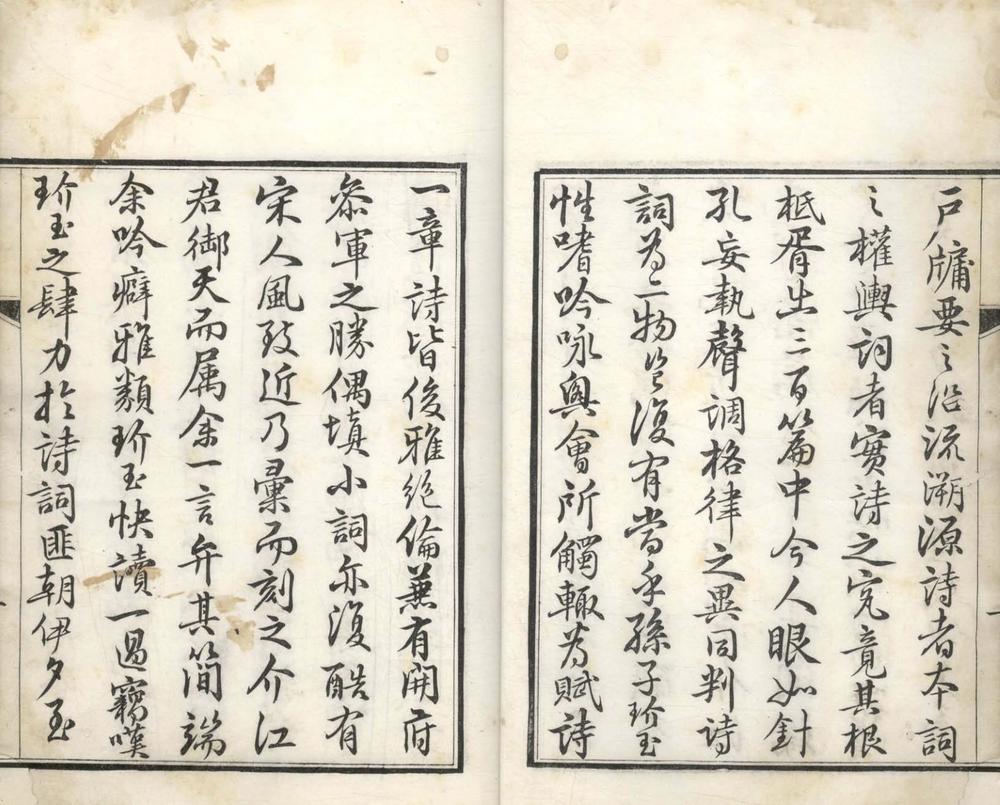 戶牖要之沿流溯源詩者本詞
之權輿詞者實詩之究竟其根
柢胥出三百篇中今人眼如針
孔妄執聲調格律之異同判詩
詞為二物豈復有當乎孫子玠玉
性嗜吟咏興會所觸輙為賦詩
一章詩皆俊雅絕倫蕪有開府
叅軍之勝偶填小詞亦復酷有
宋人風致近乃彙而刻之介江
君御天而属余一言弁其簡端
余吟癖雅類玠玉快讀一過竊嘆
玠玉之肆力於詩詞匪朝伊夕至